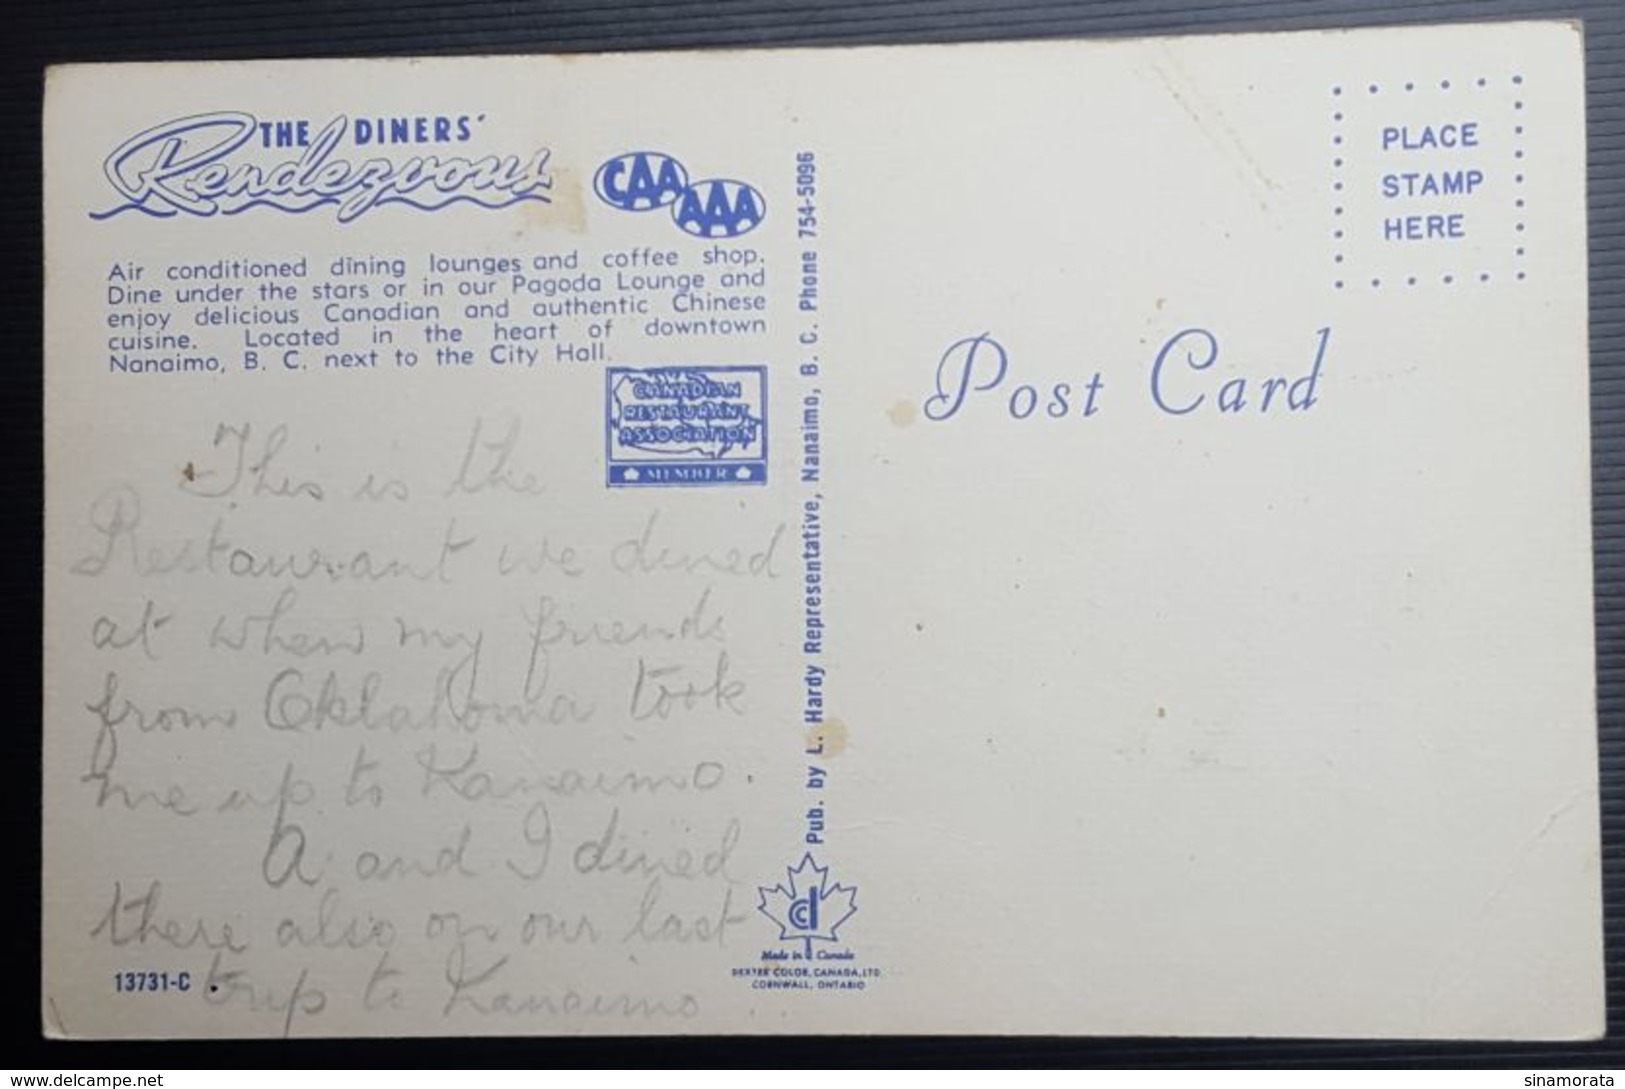 THE DINERS'
Rendezvous
CAA
AAA
Air conditioned dining lounges and coffee shop.
Dine under the stars or in our Pagoda Lounge and
enjoy delicious Canadian and authentic Chinese
cuisine. Located in the heart of downtown
Nanaimo, B. C. next to the City Hall.
CANADIAN
RESTAURANT
ASSOCIATION
MEMBER
This is the
Restaurant we dined
at when my friends
from Oklahoma took
me up to Nanaimo.
A and I dined
there also on our last
trip to Nanaimo
13731-C
Pub. by L. Hardy Representative, Nanaimo, B. C. Phone 754-5096
Made in Canada
DEXTER COLOR, CANADA, LTD
CORNWALL, ONTARIO
PLACE
STAMP
HERE
Post Card
delcampe.net
sinamorata